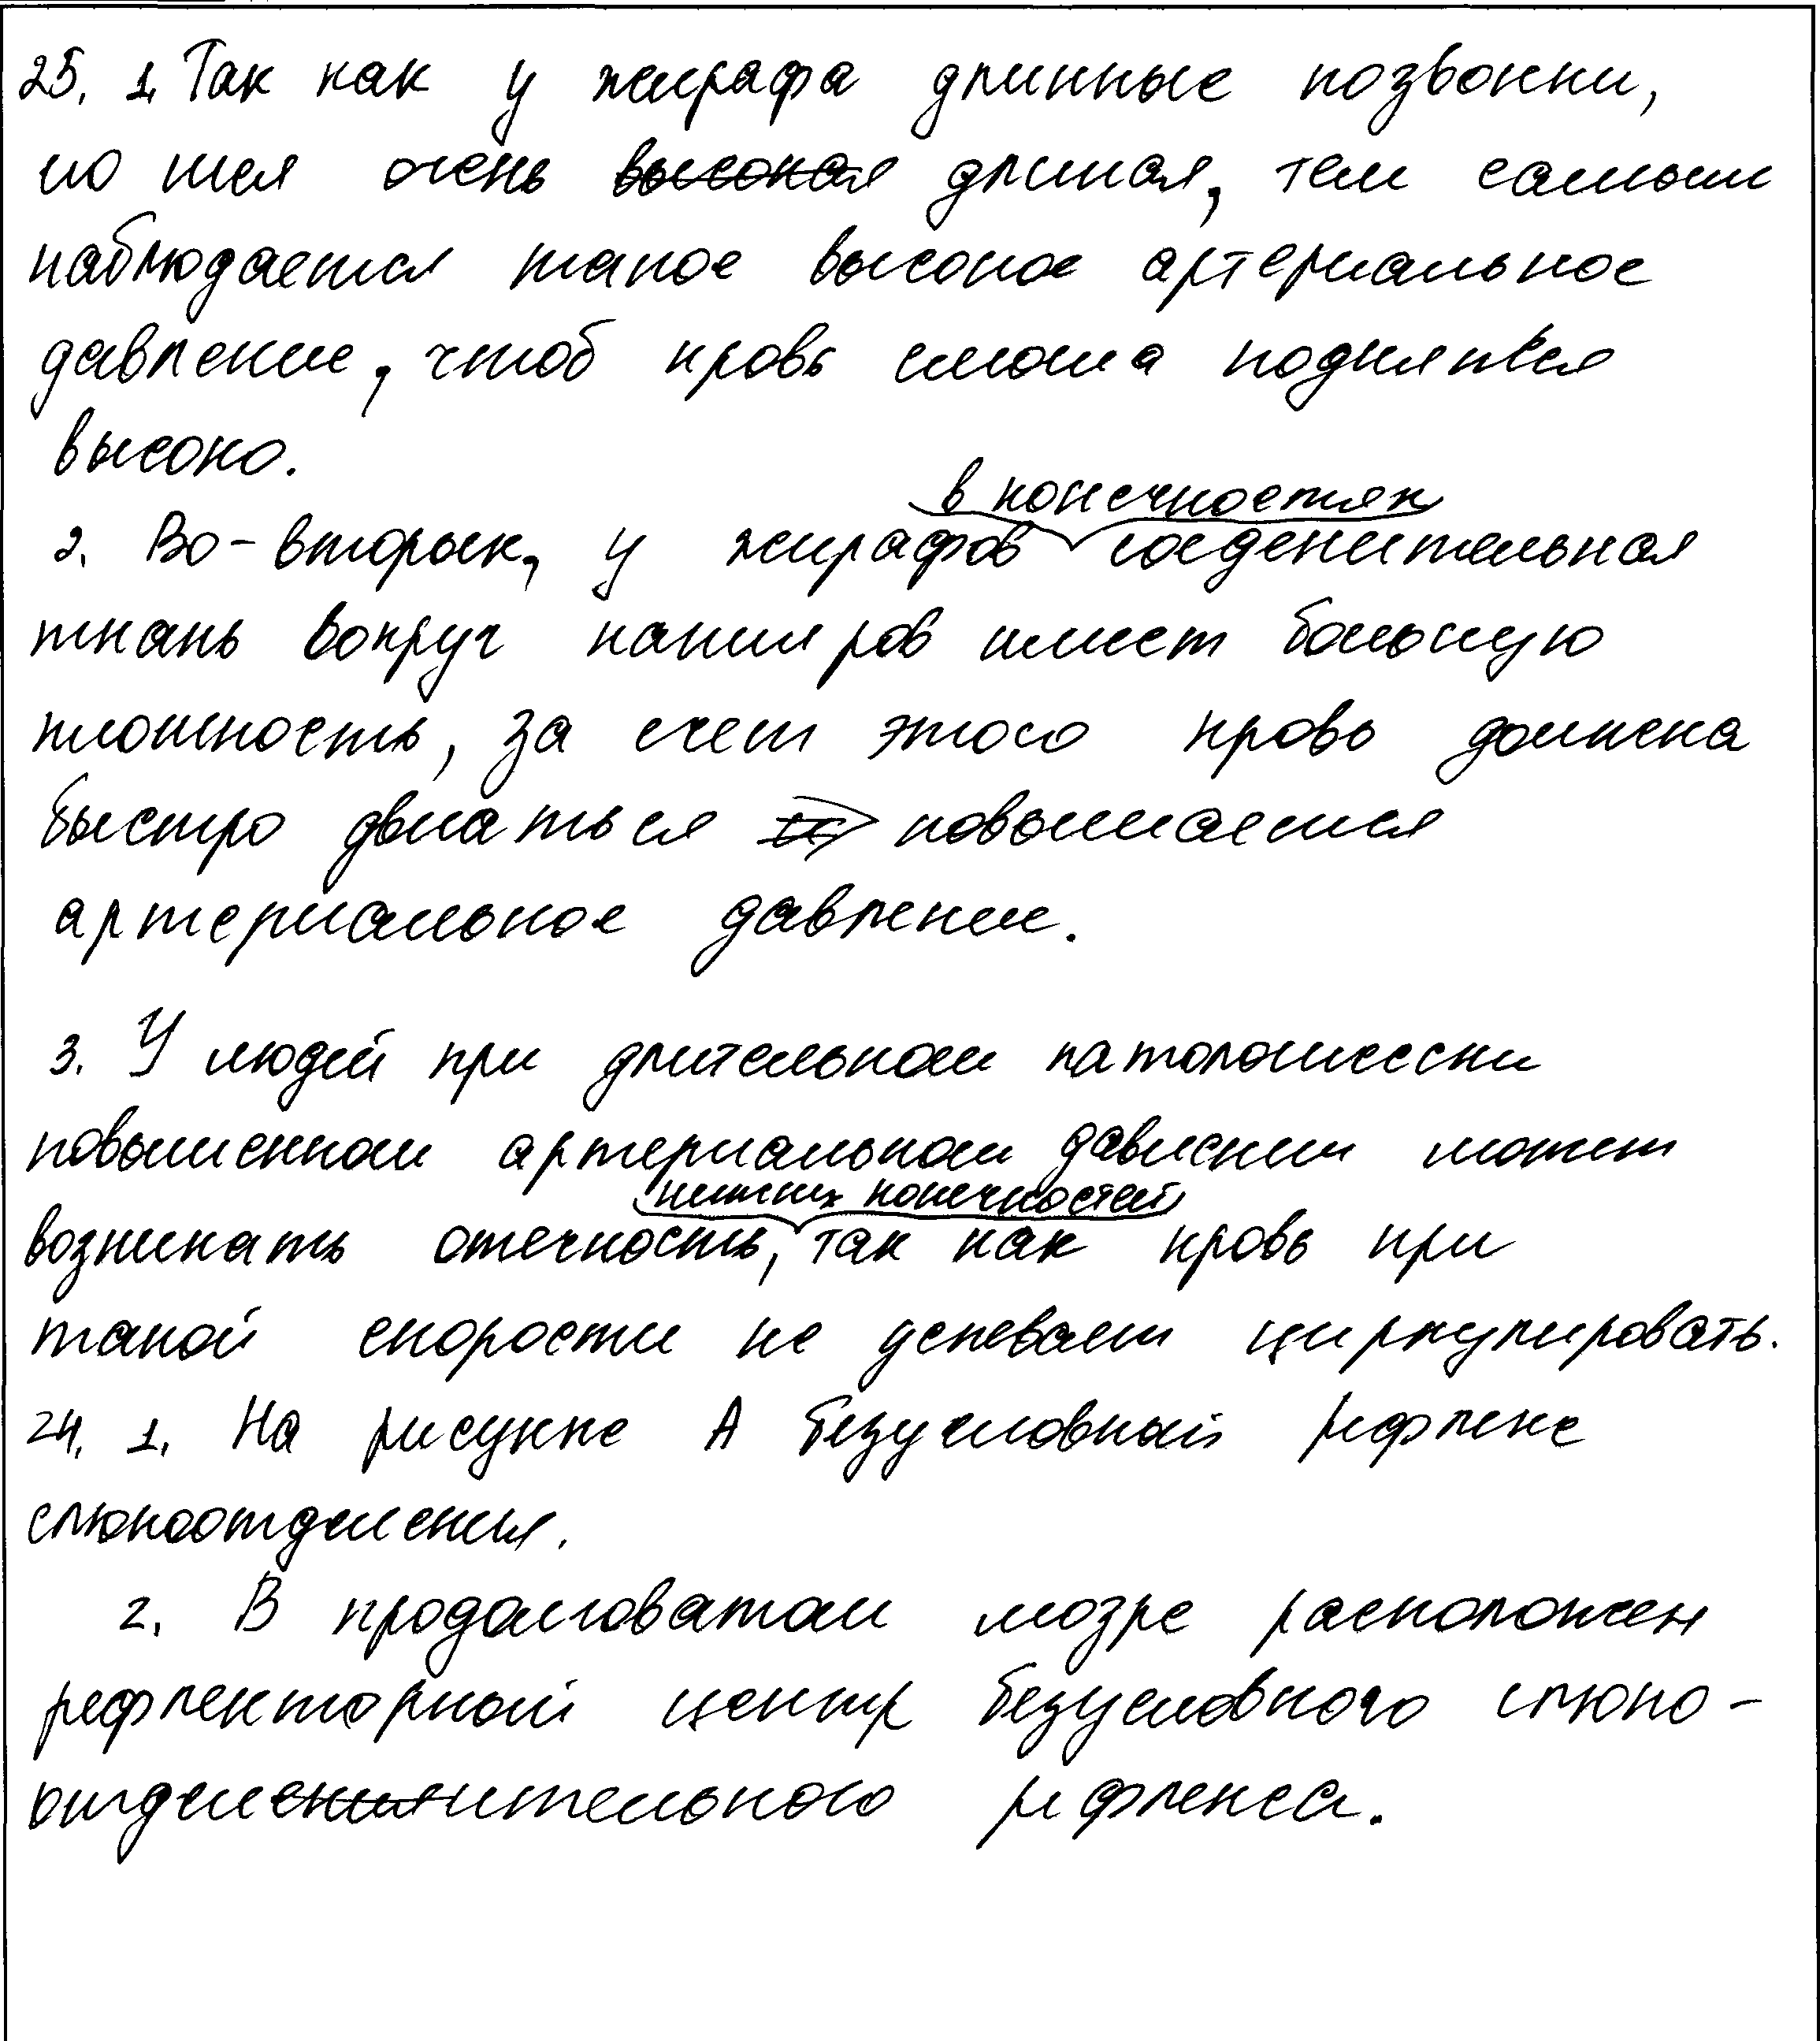 25. 1. Так как у жирафа длинные позвонки,
но шея очень высокая длиная, тем самым
наблюдается такое высокое артериальное
давление, чтоб кровь смогла подняться
высоко.
в конечностях
2. Во-вторых, у жирафов соеденительная
ткань вокруг капиляров имеет большую
плотность, за счет этого кровь должна
быстро двигаться повышается
артериальное давление.
3. У людей при длительном патологически
повышенном артериальном давлении может
нижних конечностей
возникать отечность, так как кровь при
такой скорости не успевает циркулировать.
24. 1. На рисунке А безусловный рефлекс
слюноотделения.
2. В продолговатом мозге расположен
рефлекторный центр безусловного слюно-
отделительного рефлекса.